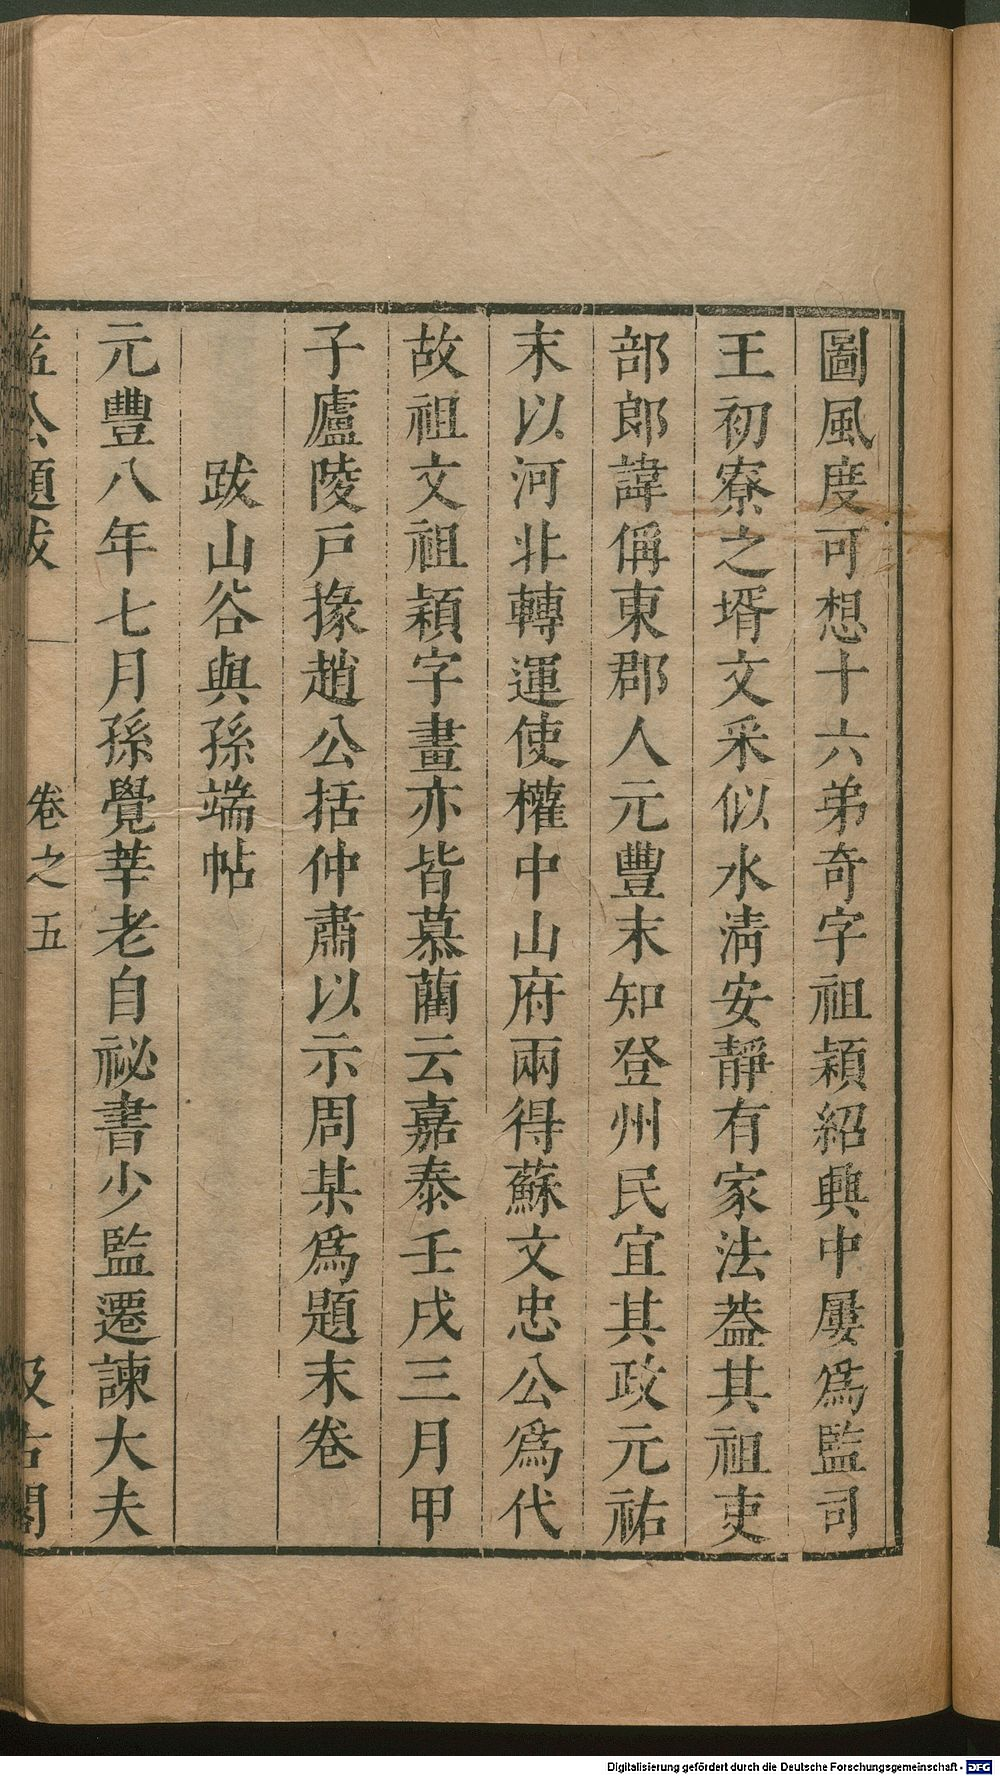 圖風度可想十六弟奇字祖穎紹興中屢爲監司
王初寮之壻文采似水淸安靜有家法葢其祖吏
部郎諱偁東郡人元豐末知登州民宜其政元祐
末以河北轉運使權中山府兩得蘇文忠公爲代
故祖文祖穎字畫亦皆慕藺云嘉泰壬戌三月甲
子廬陵戸掾趙公括仲肅以示周某爲題末卷
跋山谷與孫端帖
元豐八年七月孫覺莘老自祕書少監遷諫大夫
益公題跋 卷之五 汲古閣
Digitalisierung gefördert durch die Deutsche Forschungsgemeinschaft - DFG